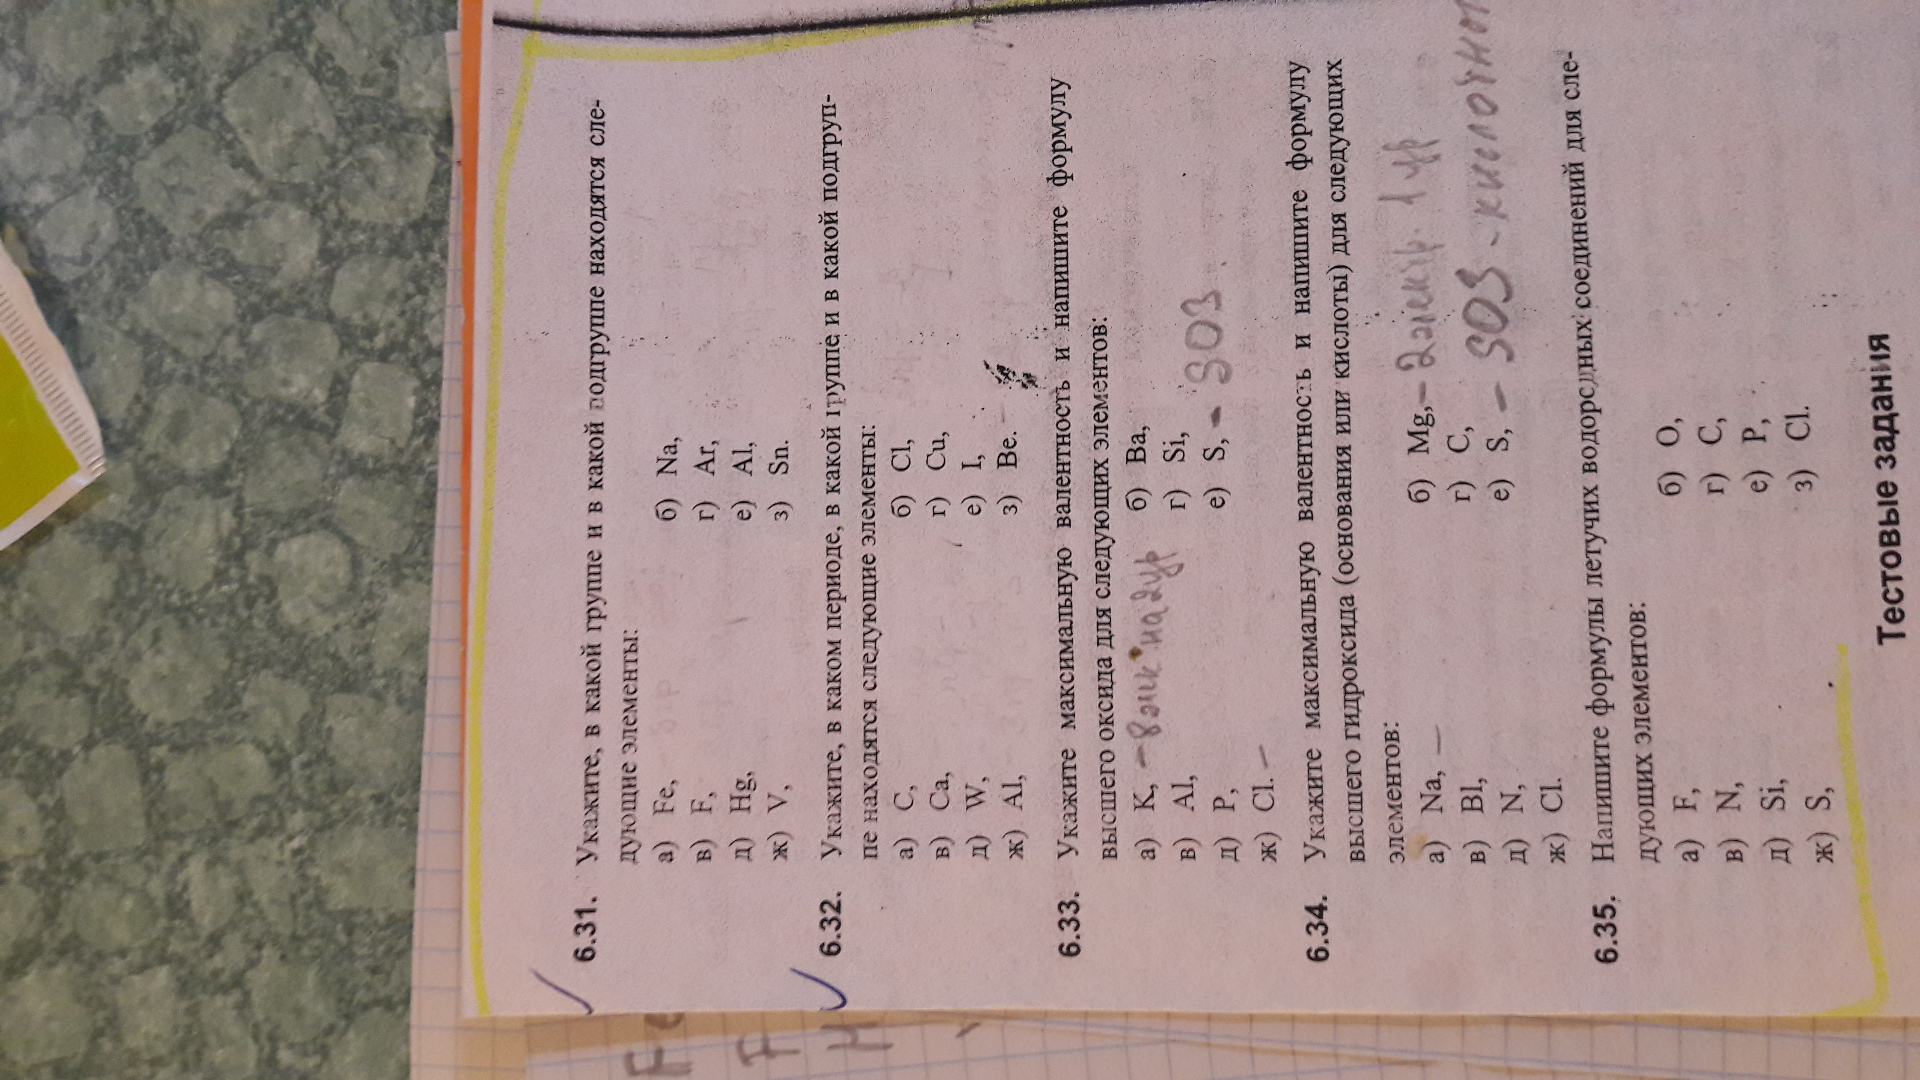 6.31. Укажите, в какой группе и в какой подгруппе находятся сле-
дующие элементы:
а) Fe, б) Na,
в) F, г) Ar,
д) Hg, е) Al,
ж) V, з) Sn.
6.32. Укажите, в каком периоде, в какой группе и в какой подгруп-
пе находятся следующие элементы:
а) C, б) Cl,
в) Ca, г) Cu,
д) W, е) I,
ж) Al, з) Be.
6.33. Укажите максимальную валентность и напишите формулу
высшего оксида для следующих элементов:
а) K, - 8 элк на 2 ур б) Ba,
в) Al, г) Si,
д) P, е) S, - SO3
ж) Cl. -
6.34. Укажите максимальную валентность и напишите формулу
высшего гидроксида (основания или кислоты) для следующих
элементов:
а) Na, - б) Mg, - 2 электр. 1 ур
в) Bl, г) C,
д) N, е) S, - SO3 - кислотн
ж) Cl.
6.35. Напишите формулы летучих водородных соединений для сле-
дующих элементов:
а) F, б) O,
в) N, г) C,
д) Si, е) P,
ж) S, з) Cl.
Тестовые задания
Fe
F
H